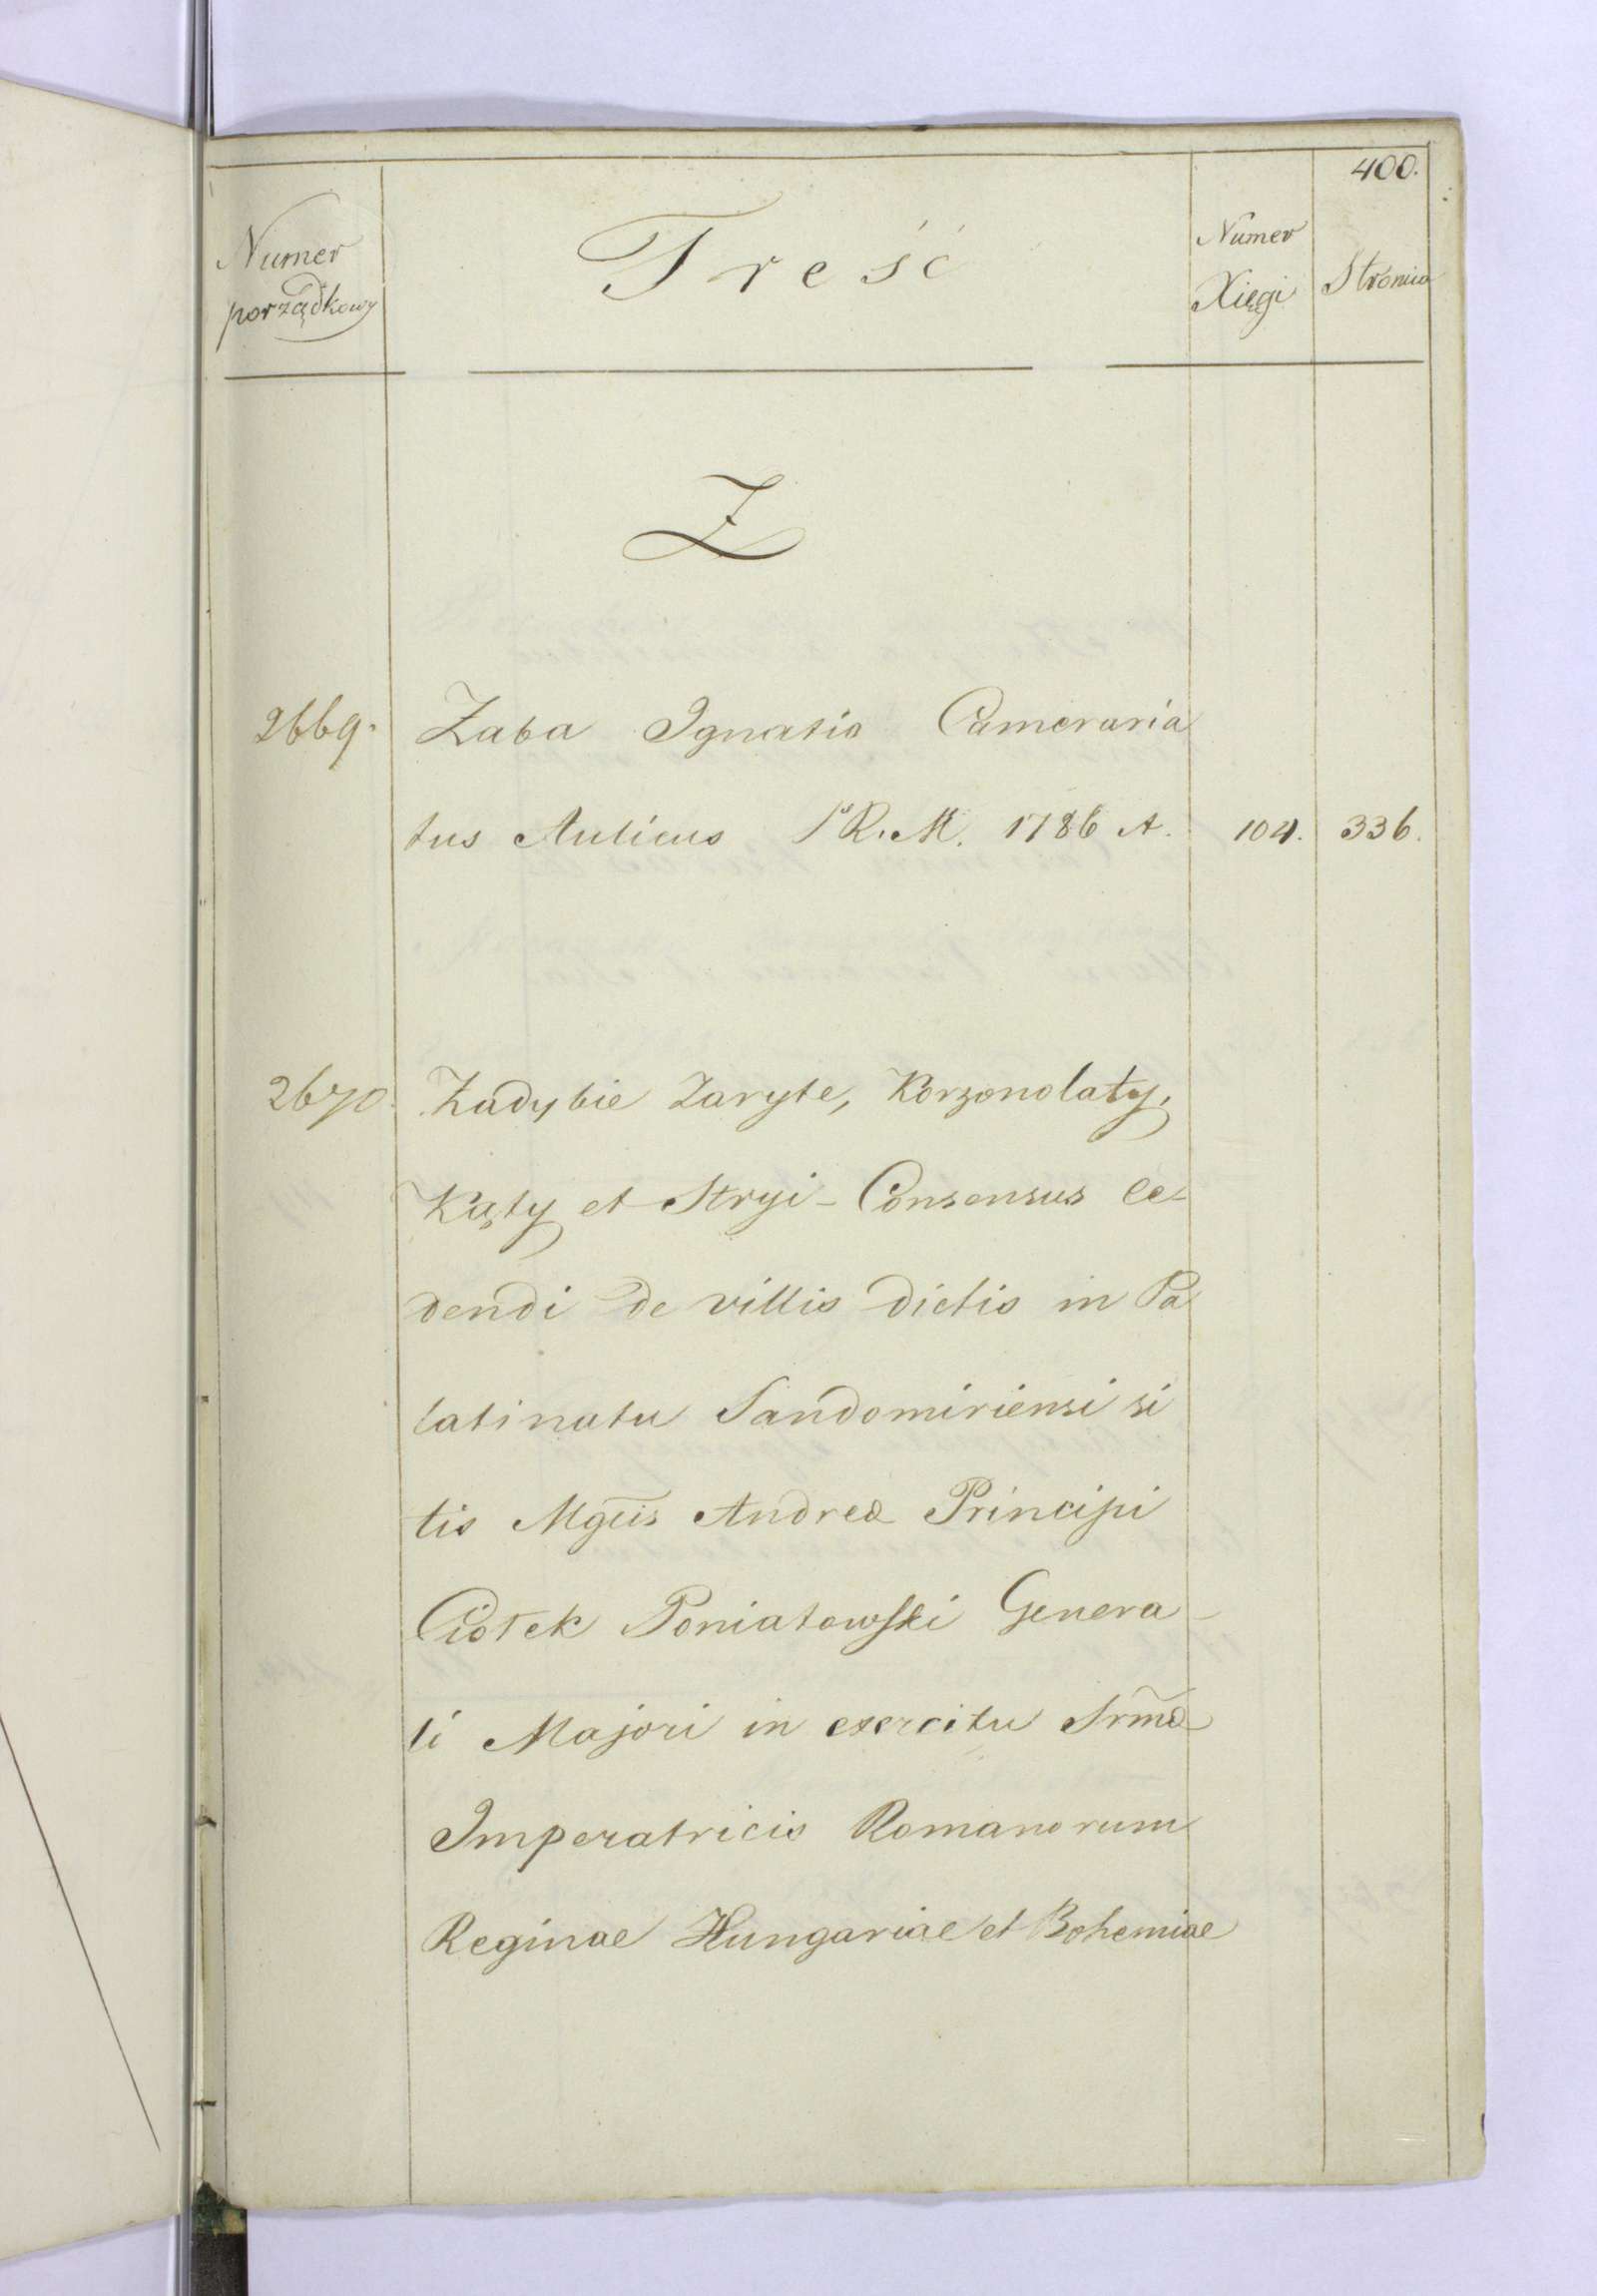 400.
Numer
porządkowy
Treść
Numer
Xięgi
Stronica
Z
2669. Zaba Ignatio Cameraria
tus Aulicus S R. M. 1786 A. 104. 336.
2670. Zadybie Zaryte, Korzonolaty,
Kąty et Stryi - Consensus ce-
dendi de villis dictis in Pa
latinatu Sandomiriensi si
tis Mgcis Andrea Principi
Ciołek Poniatowski Genera-
li Majori in exercitu Srma
Imperatricis Romanorum
Reginae Hungariae et Bohemiae